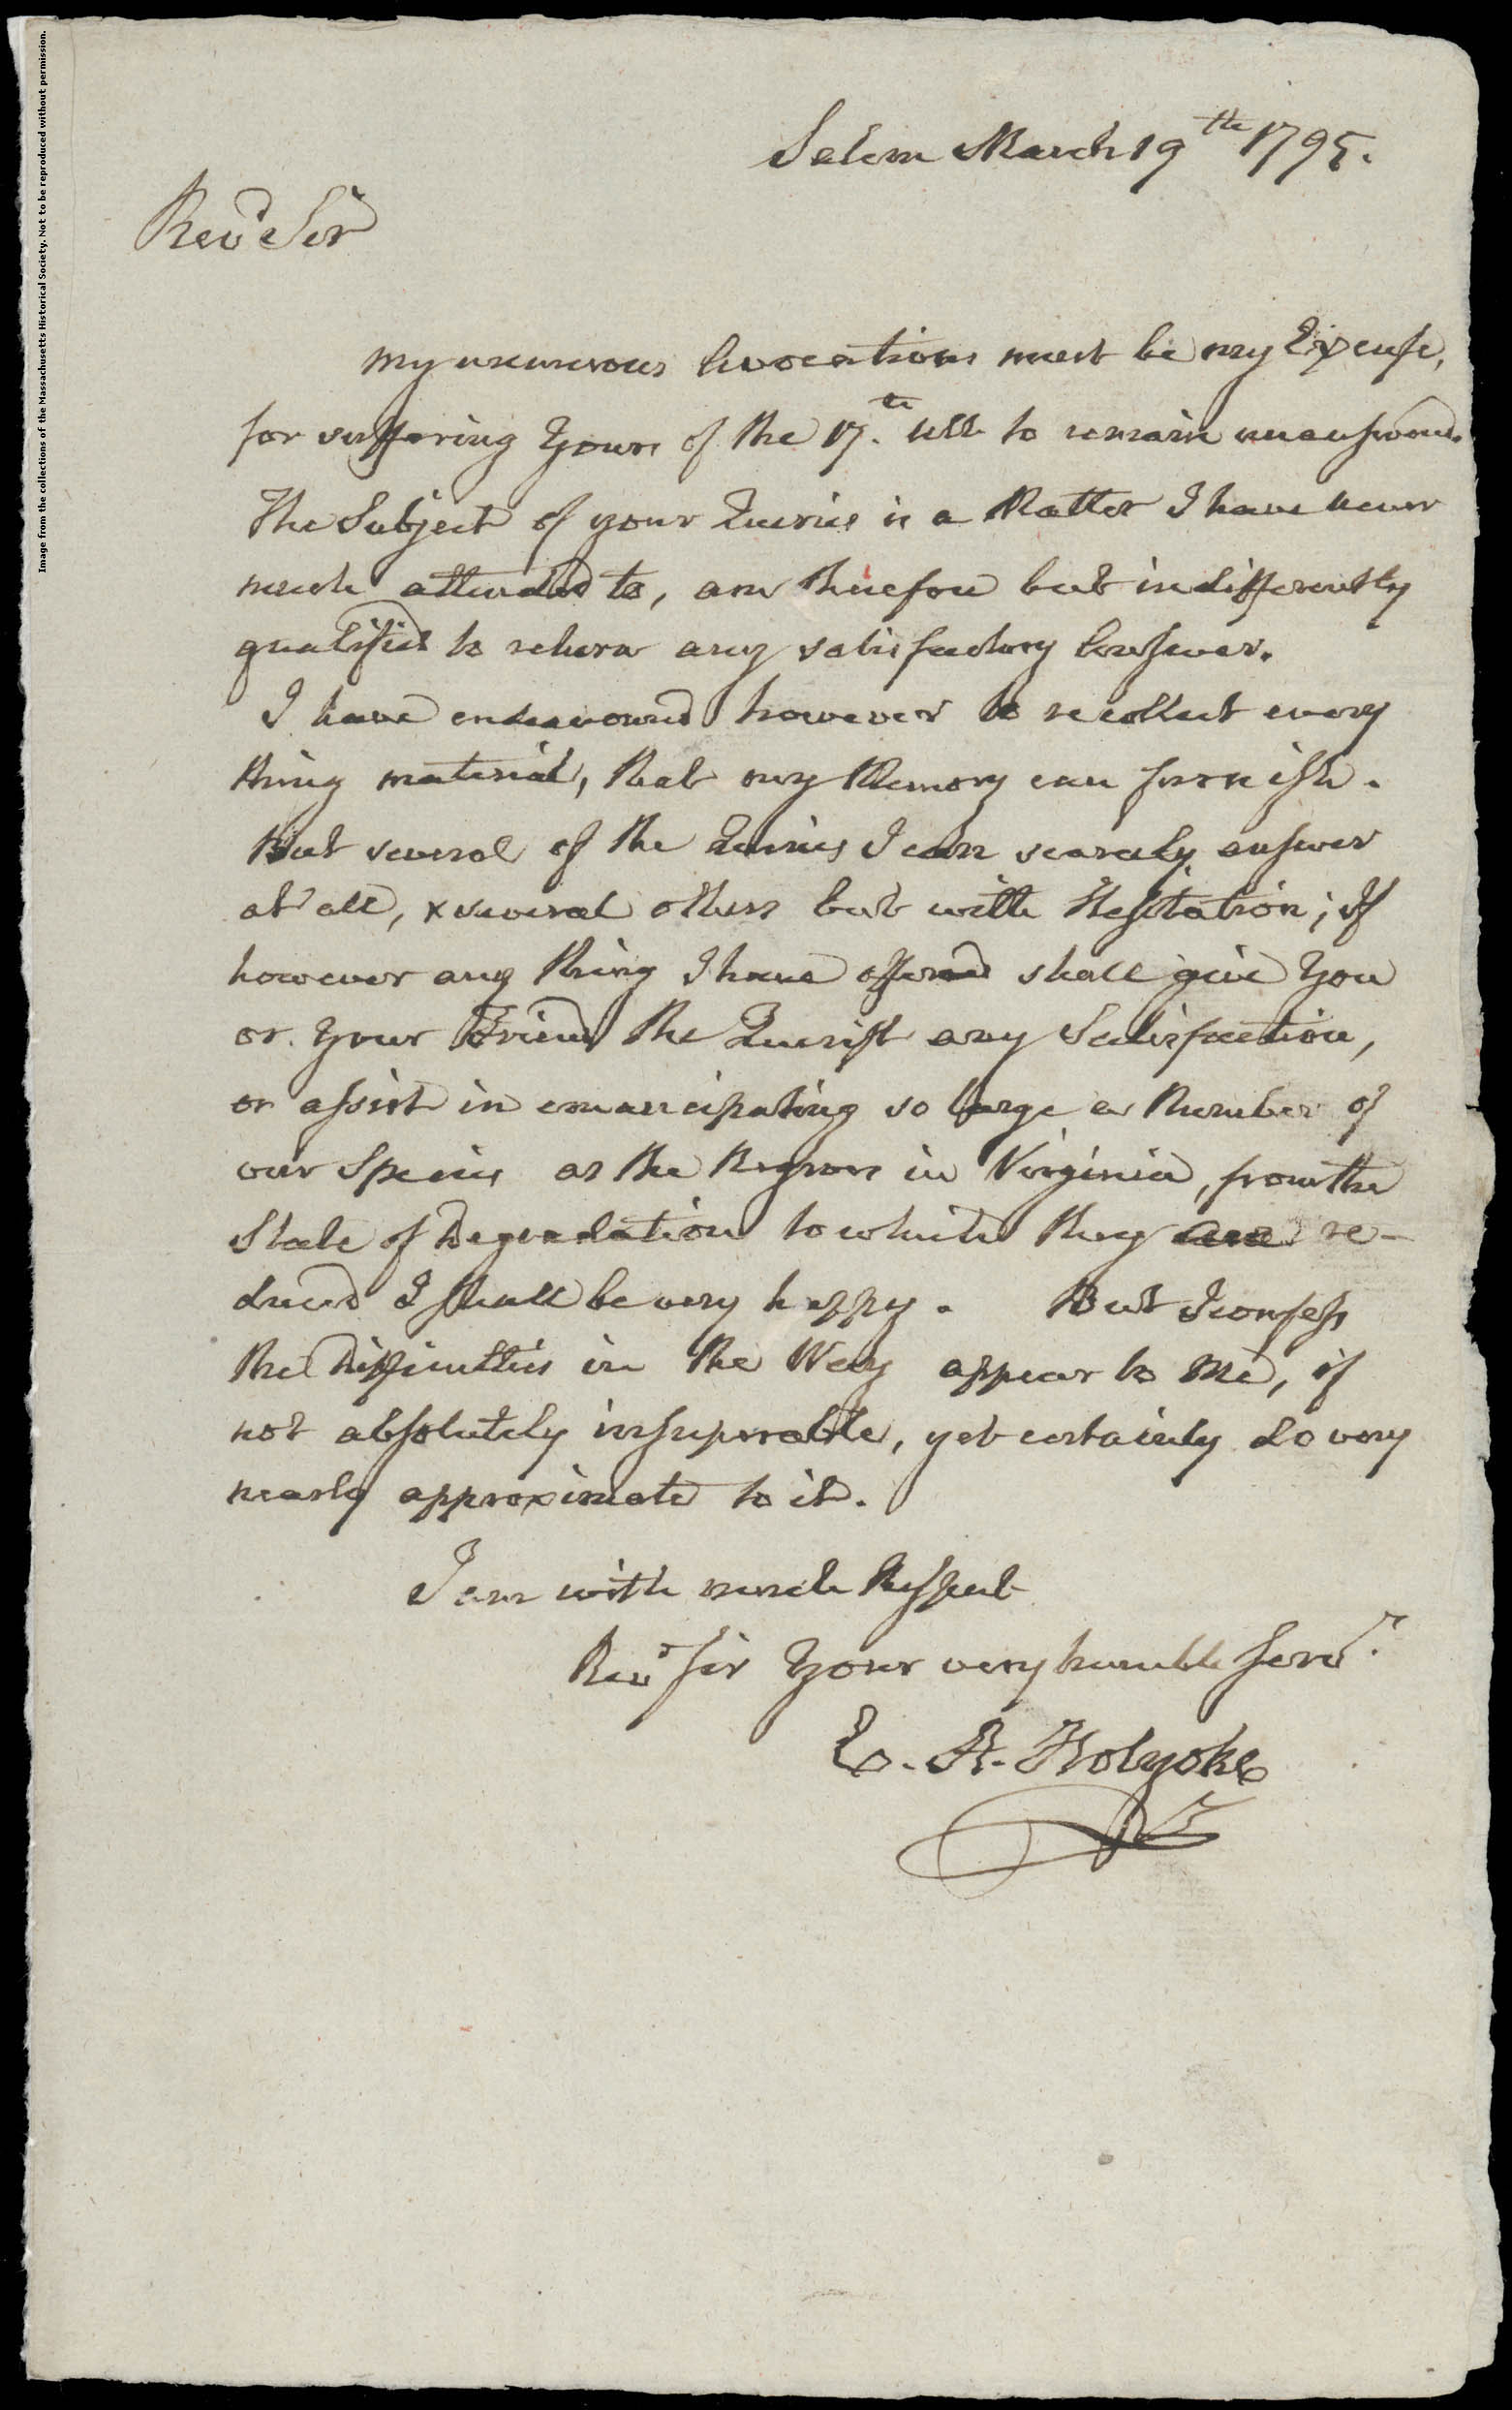 Image from the collections of the Massachusetts Historical Society. Not to be reproduced without permission.
Salem March 19th 1795.
Revd Sir
My numerous Avocations must be my Excuse,
for suffering Yours of the 17.th ult. to remain unanswered.
The Subject of your Queries is a Matter I have never
much attended to, am therefore but indifferently
qualified to return any satisfactory Answer.
I have endeavoured however to recollect every
thing material, that my Memory can furnish.
But several of the Queries I can scarcely answer
at all, & several others but with Hesitation; If
however any thing I have offered shall give You
or Your Friend the Querist any Satisfaction,
or assist in emancipating so large a Number of
our Species as the Negroes in Virginia, from the
State of Degradation to which they are re-
duced I shall be very happy. But I confess
the Difficulties in the Way appear to Me, if
not absolutely insuperable, yet certainly do very
nearly approximate to it.
I am with much Respect
Revd Sir Your very humble Servt.
E. A. Holyoke